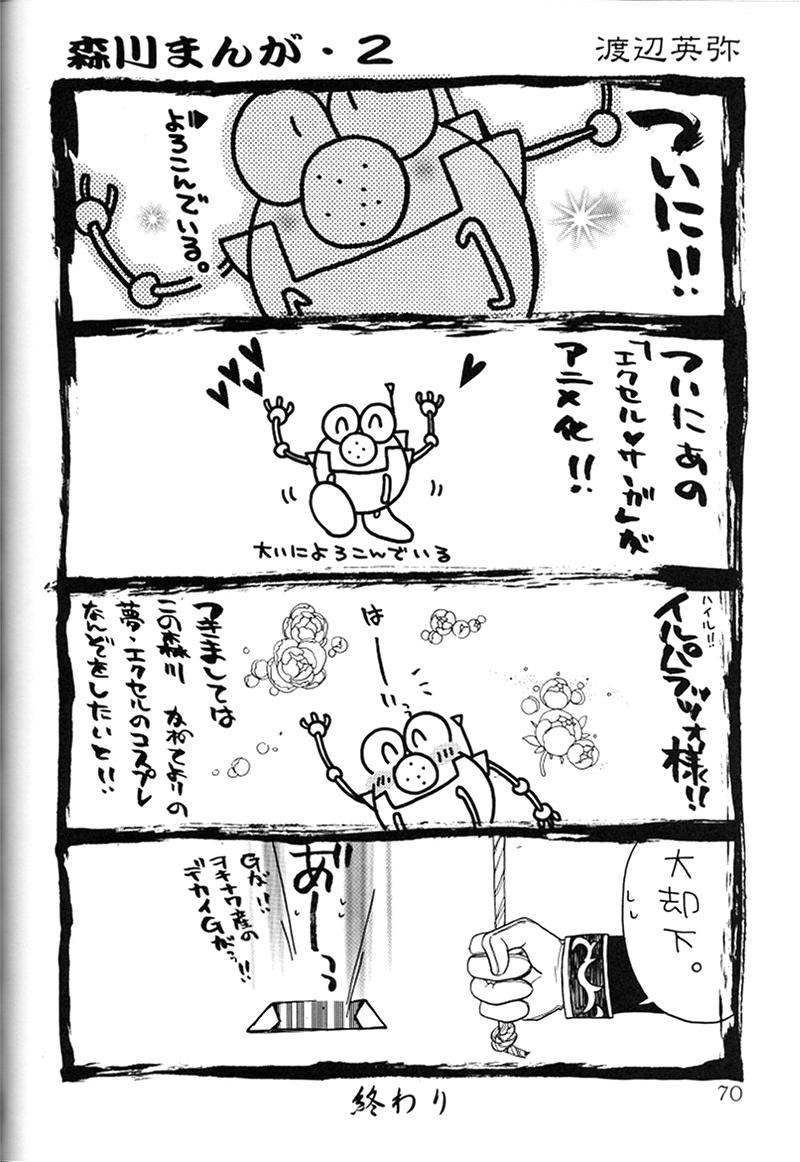 森川まんが・2
渡辺英弥
ついに!!
よろこんでいる。
ついにあの
「エクセル♥サーガ」が
アニメ化!!
大いによろこんでいる
ハイル!!
イルパラッツォ様!!
はーいっ
つきましては
この森川 かねてよりの
夢・エクセルのコスプレ
なんぞをしたいと!!
大却下。
あ゛ーっっ
Gが!!
オキナワ産の
デカイGがっ!!
終わり
70